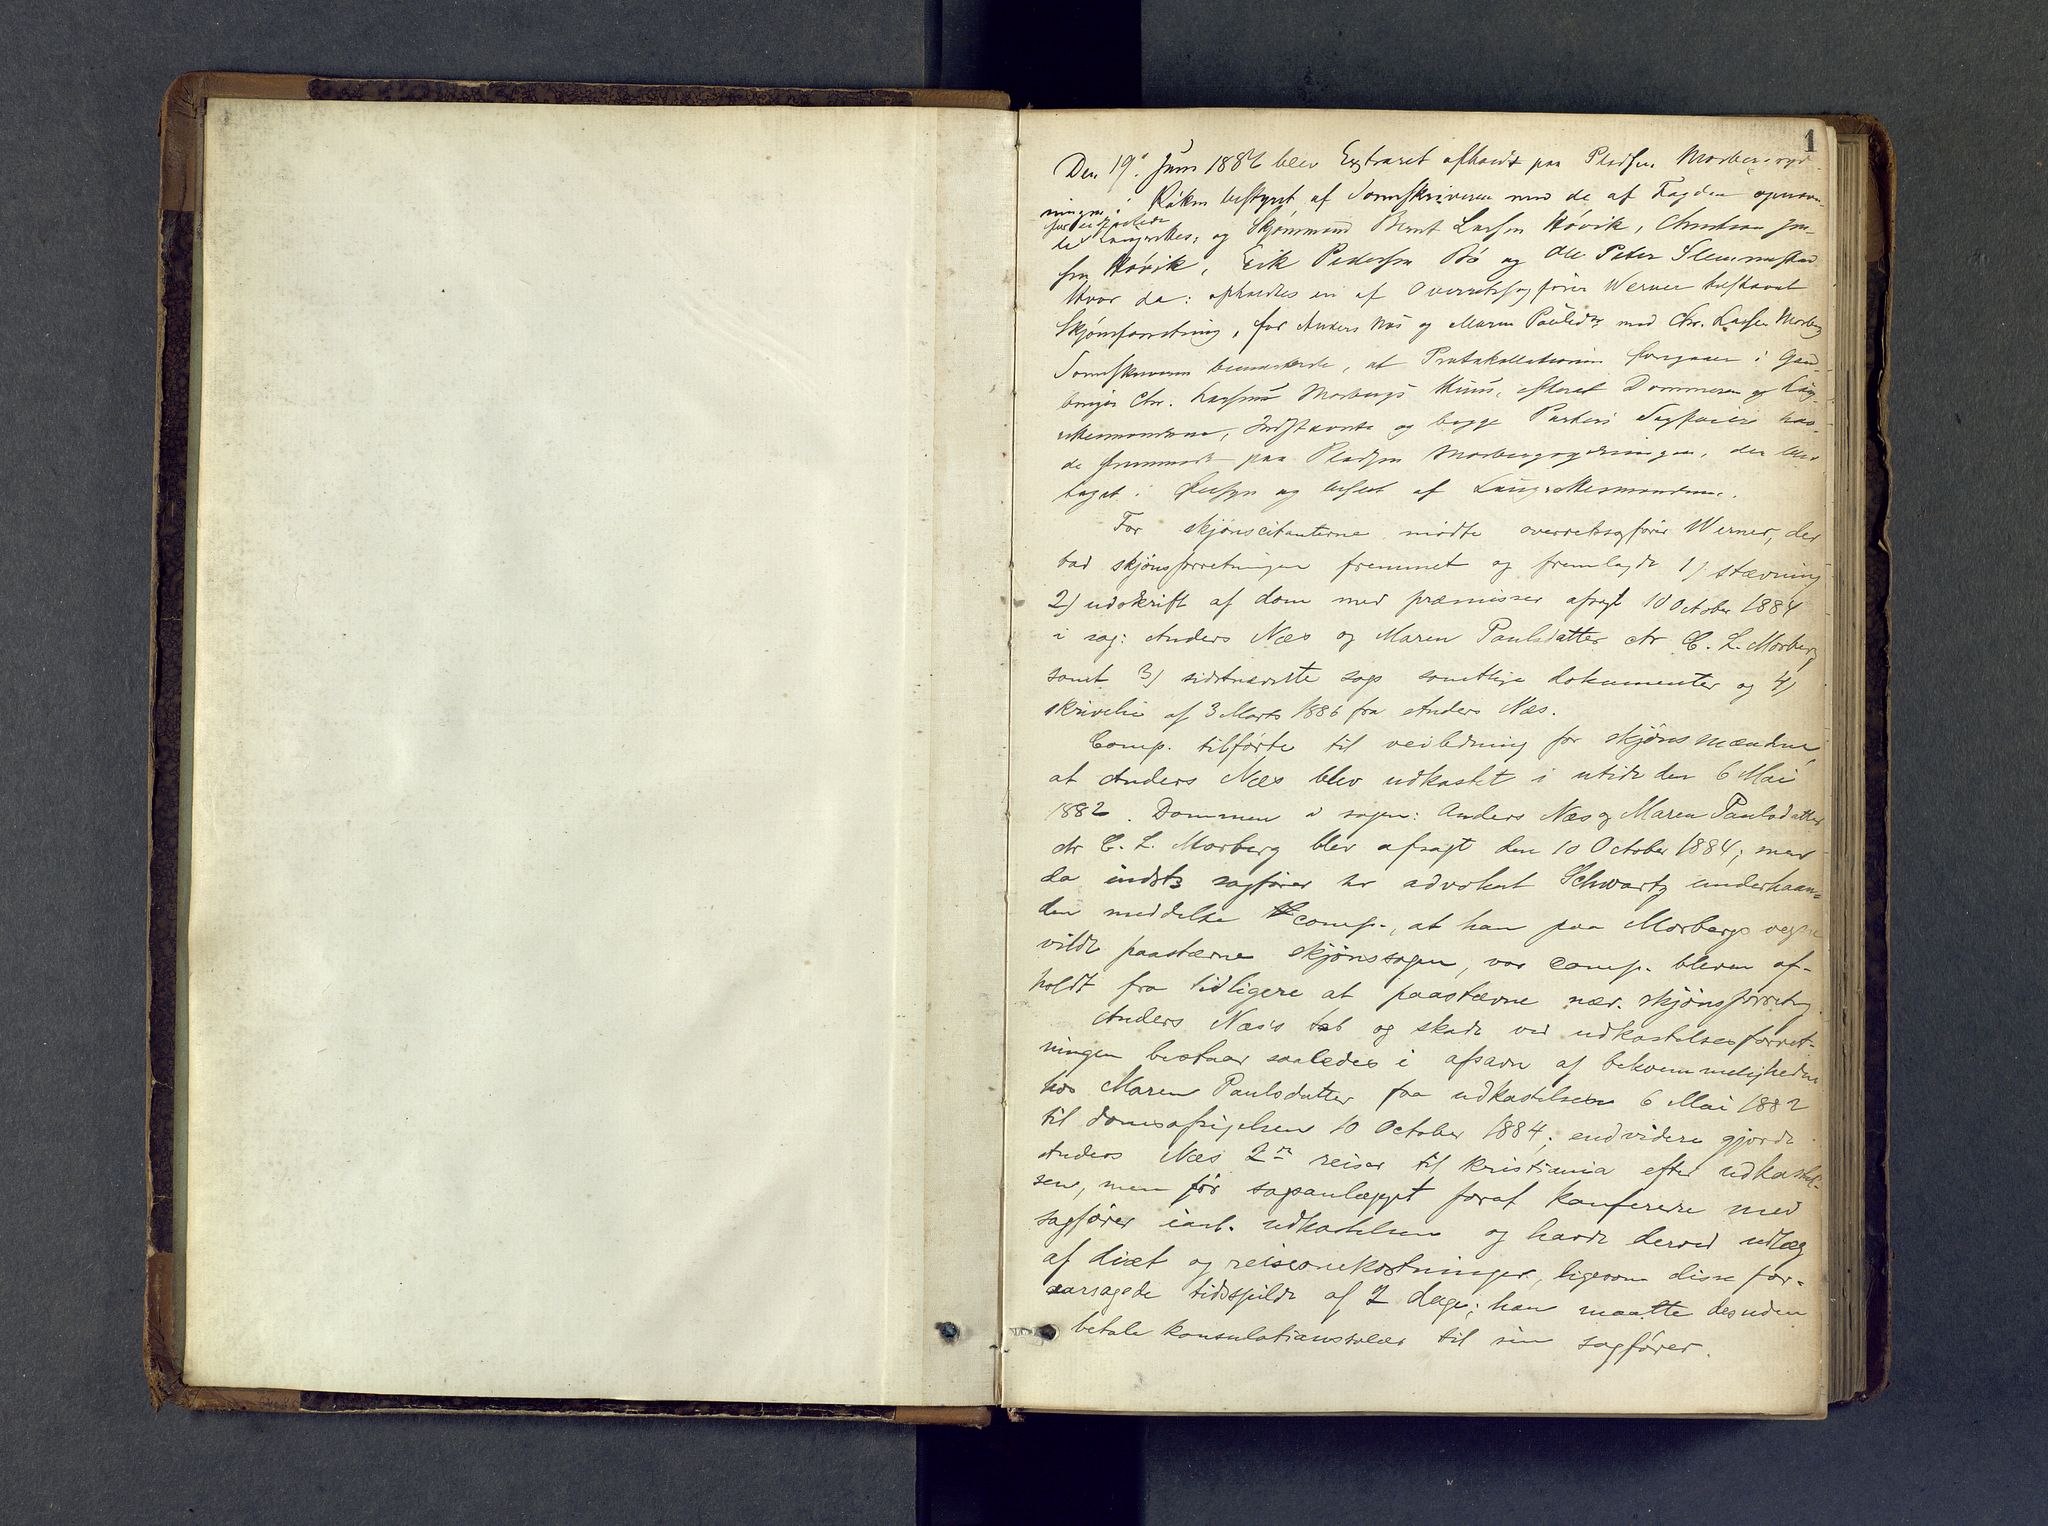 1
Den 19. Juni 188 blev Extraret afholdt paa Pladsen Morbergryd-
ningen i Röken bestyret af Sorenskriveren med de af Fogden opnævn-
te Laugrettes- og Skjønsmænd Bernt Larsen Høvik, Christian Jen-
sen Høvik, Erik Pedersen Bö og Ole Peter Slemmestad
Hvor da: afholdtes en af Overretssagfører Werner bestævnt
Skjønsforretning, for Anders Næs og Maren Paulsdr. mod Chr. Larsen Morberg
Sorenskriveren bemærkede, at Protokollationen foregaar i Gaard-
bruger Chr. Larsens Morbergs Huus, efterat Dommeren og Laug-
rettesmændene, Indstævnte og begge Parters Sagførere hav-
de fremmødt paa Pladsen Morbergrydningen, der blev
taget i Øiesyn og beseet af Laugrettesmændene.
For skjönscitanterne mödte overretssagfører Werner, der
bad skjönsforretningen fremmet og fremlagde 1) stævning
2) udskrift af dom med præmisser afsagt 10 October 1884
i sag: Anders Næs og Maren Paulsdatter ctr C. L. Morberg
samt 3) sidstnævnte sags samtlige dokumenter og 4)
skrivelse af 3 Marts 1886 fra Anders Næs.
Comp. tilførte til veiledning for skjönsmændene,
at Anders Næs blev udkastet i utide den 6 Mai
1882. Dommen i sagen: Anders Næs og Maren Paulsdatter
ctr C. L. Morberg blev afsagt den 10 October 1884; men
da indsts sagfører hr advokat Schwartz underhaan-
den meddelte comp., at han paa Morbergs vegne
vilde paastævne skjönssagen, var comp. bleven af-
holdt fra tidligere at paastævne nær. skjönsforretng.
Anders Næs's tab og skade ved udkastelsesforret-
ningen bestaar saaledes i afsavn af bekvemmeligheden
hos Maren Paulsdatter fra udkastelsen 6 Mai 1882
til domsafsigelsen 10 October 1884; endvidere gjorde
Anders Næs 2de reiser til Kristiania efter udkastel-
sen, men før sagsanlægget foraf konferere med
sagfører ianl. udkastelsen og havde derved udlæg
af diæt og reiseomkostninger, ligesom disse for-
aarsagede tidsspilde af 2 dage; han maatte desuden
betale konsulationssalær til sin sagfører.